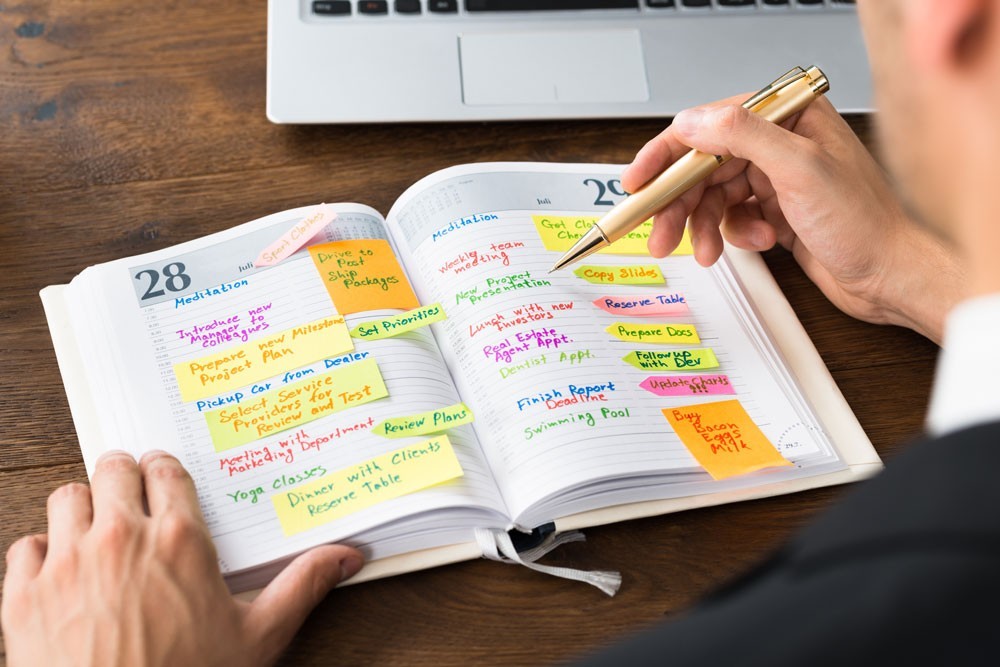 28
Juli
Sport Clothes
Meditation
Drive to
Post
Ship
Packages
Introduce new
Manager to
colleagues
Set Priorities
Prepare new Milestone
Project Plan
Pickup Car from Dealer
Select Service
Providers for
Review and Test
Meeting with
Marketing Department
Review Plans
Yoga Classes
Dinner with Clients
Reserve Table
Juli
29
Meditation
Get
Weekly team
meeting
Copy Slides
New Project
Presentation
Reserve Table
Lunch with new
Investors
Prepare Docs
Real Estate
Agent Appt.
Follow up
with Dev
Dentist Appt.
Update Charts
!!!
Finish Report
Deadline
Buy
Bacon
Eggs
Milk
Swimming Pool